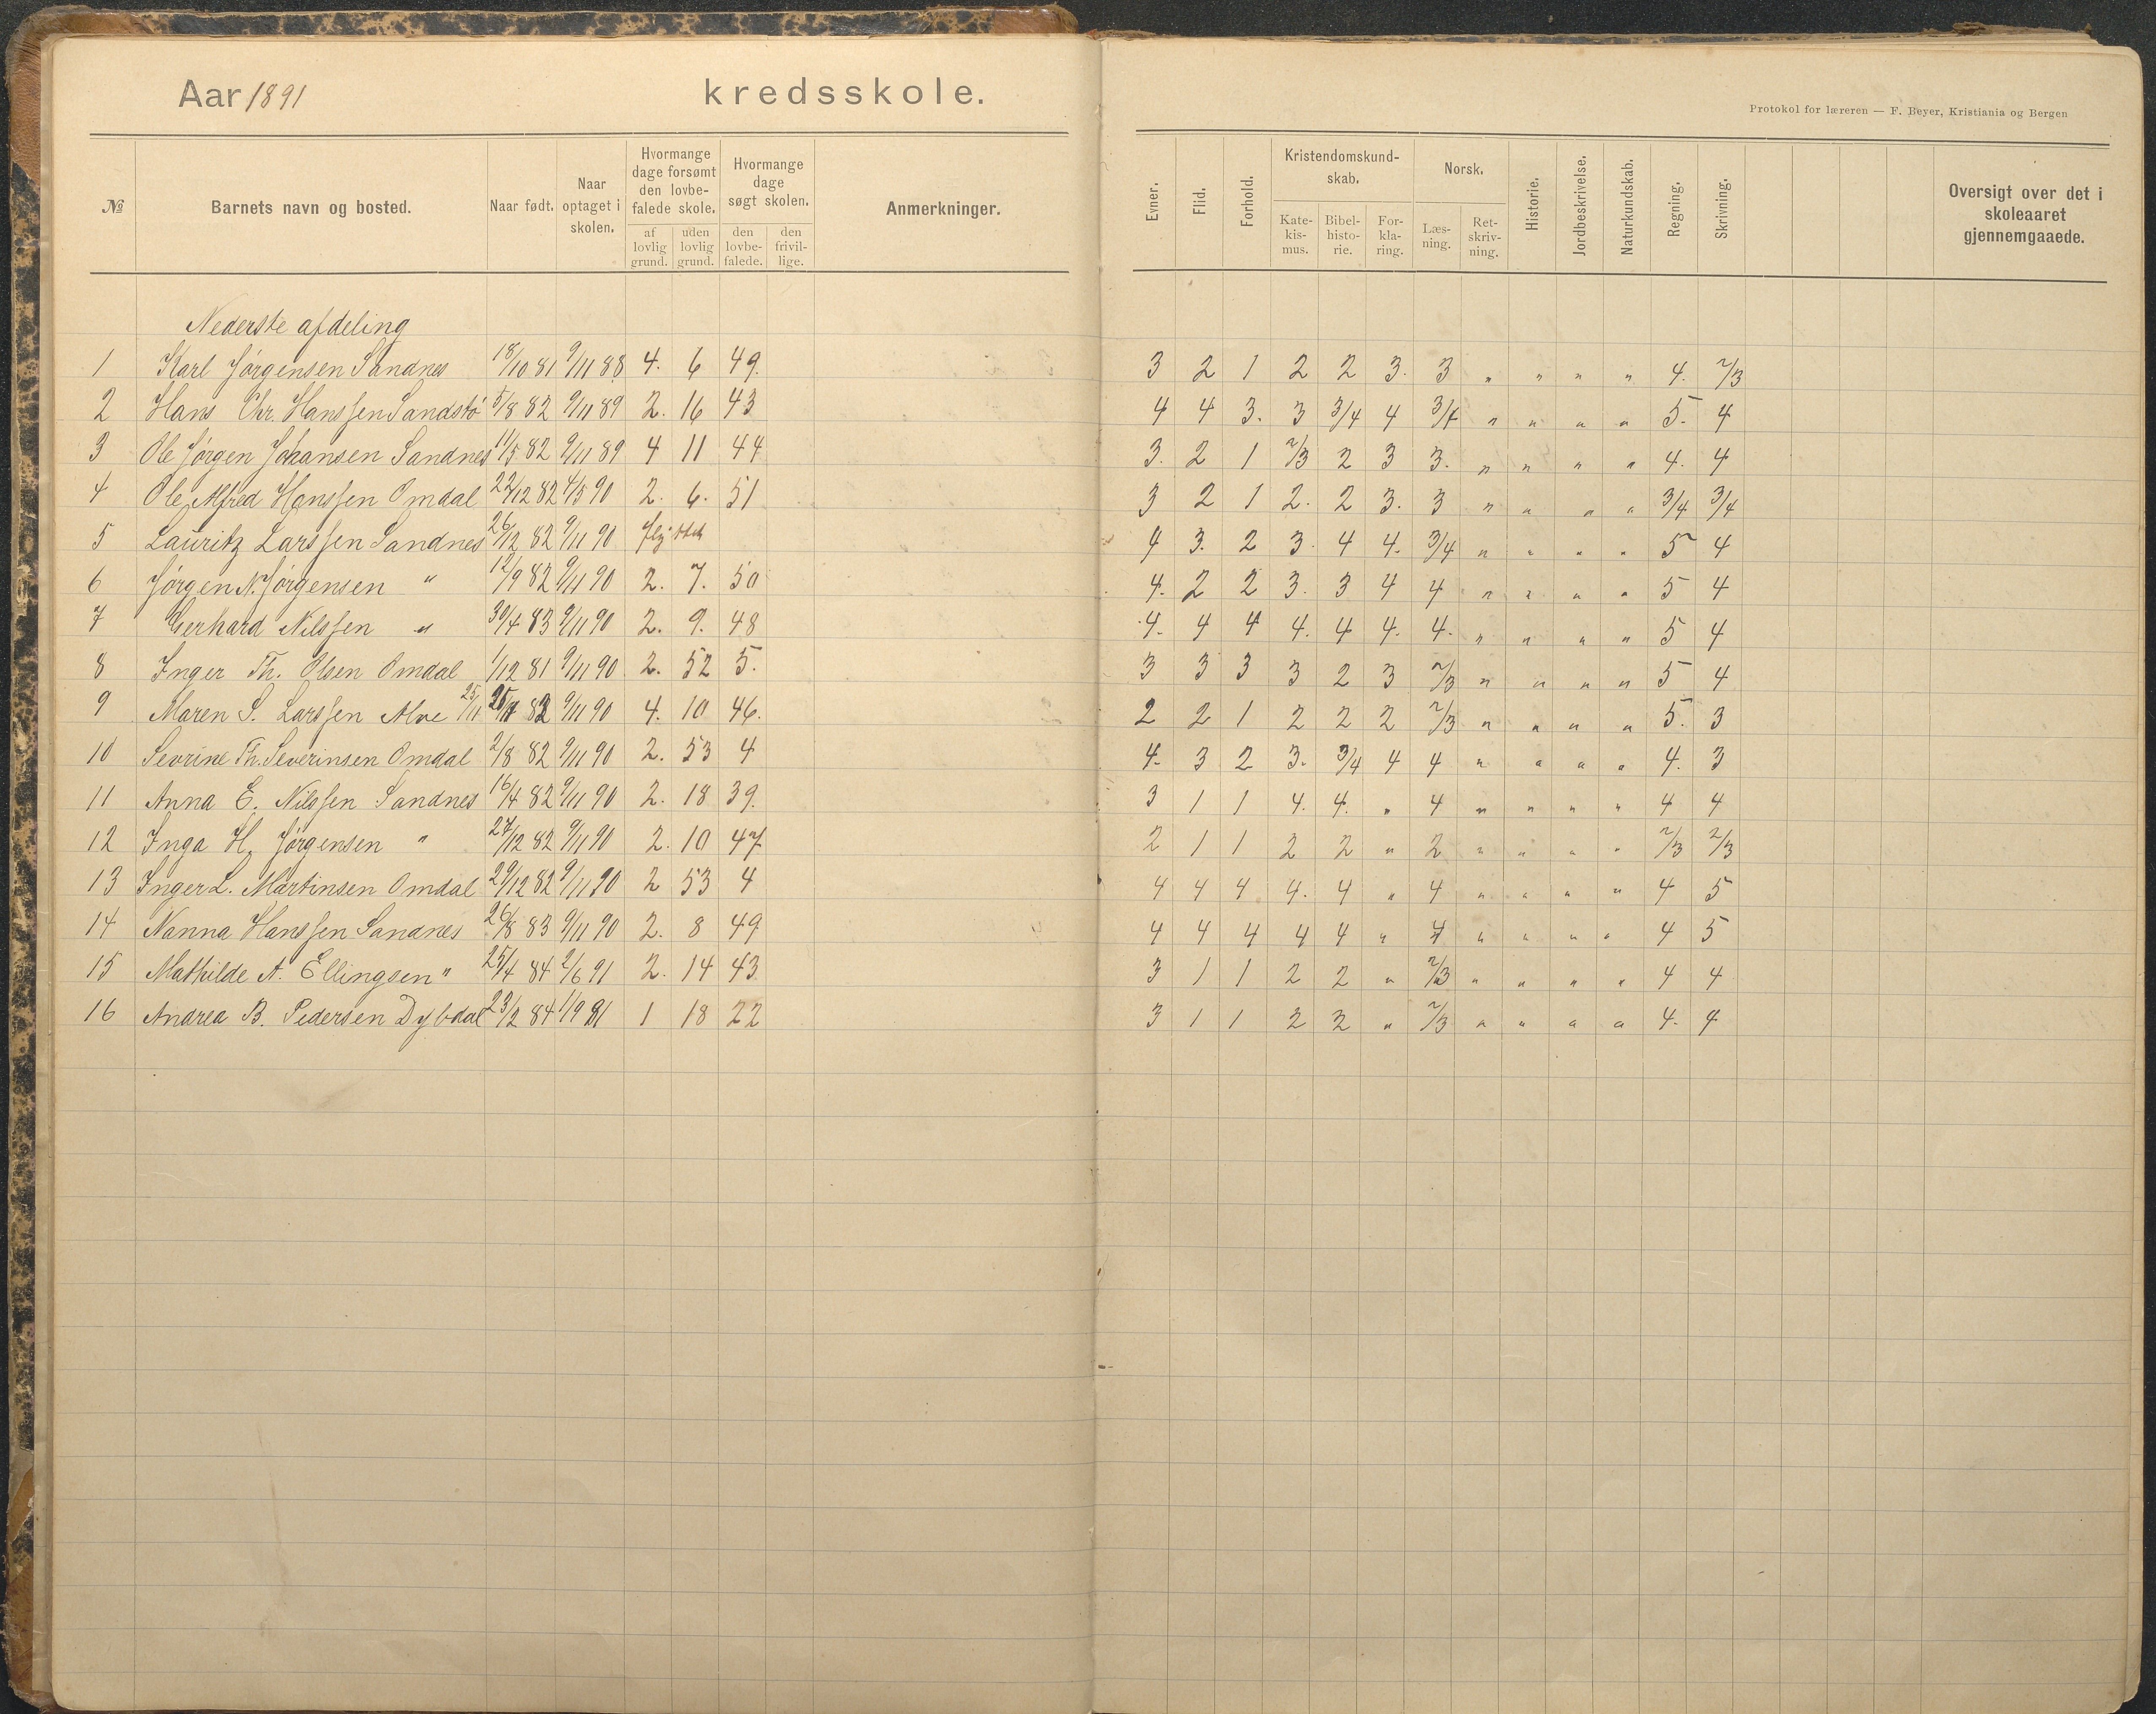 Aar 1891 kredsskole.
Protokol for læreren — F. Beyer, Kristiania og Bergen
№ Barnets navn og bosted. Naar født. Naar optaget i skolen. Hvormange dage forsømt den lovbefalede skole. af lovlig grund. uden lovlig grund. Hvormange dage søgt skolen. den lovbefalede. den frivillige. Anmerkninger. Evner. Flid. Forhold. Kristendomskundskab. Katekismus. Bibelhistorie. Forklaring. Norsk. Læsning. Retskrivning. Historie. Jordbeskrivelse. Naturkundskab. Regning. Skrivning. Oversigt over det i skoleaaret gjennemgaaede.
Nederste afdeling
1 Karl Jørgensen Sandnes 18/10 81 9/11 88 4. 6 49. 3 2 1 2 2 3. 3 " " " " 4. 2/3
2 Hans Chr. Hanssen Sandstø 5/8 82 9/11 89 2. 16 43 4 4 3. 3 3/4 4 3/4 " " " " 5. 4
3 Ole Jørgen Johansen Sandnes 11/5 82 9/11 89 4 11 44 3. 2 1 2/3 2 3 3. " " " " 4. 4
4 Ole Alfred Hanssen Omdal 22/12 82 4/5 90 2. 6. 51 3 2 1 2. 2 3. 3 " " " " 3/4 3/4
5 Lauritz Larssen Sandnes 26/12 82 9/11 90 flyttet 4 3. 2 3. 4 4. 3/4 " " " " 5 4
6 Jørgen N. Jørgensen " 12/9 82 9/11 90 2. 7. 50 4. 2 2 3. 3 4 4 " " " " 5 4
7 Gerhard Nilssen " 30/4 83 9/11 90 2. 9. 48 4. 4 4 4. 4 4. 4. " " " " 5 4
8 Inger Th. Olsen Omdal 1/12 81 9/11 90 2. 52 5. 3 3 3 3 2 3 2/3 " " " " 5 4
9 Maren S. Larssen Alve 25/11 82 9/11 90 4. 10 46. 2 2 1 2 2 2 2/3 " " " " 5. 3
10 Sevrine Th. Severinsen Omdal 2/8 82 9/11 90 2. 53 4 4. 3 2 3. 3/4 4 4 " " " " 4. 3
11 Anna E. Nilssen Sandnes 16/4 82 9/11 90 2. 18 39. 3 1 1 4. 4. " 4 " " " " 4 4
12 Inga H. Jørgensen " 27/12 82 9/11 90 2. 10 47 2 1 1 2 2 " 2 " " " " 2/3 2/3
13 Inger L. Martinsen Omdal 29/12 82 9/11 90 2 53 4 4 4 4 4. 4 " 4 " " " " 4 5
14 Nanna Hanssen Sandnes 26/8 83 9/11 90 2. 8 49 4 4 4 4 4 " 4 " " " " 4 5
15 Mathilde A. Ellingsen " 25/4 84 2/6 91 2. 14 43 3 1 1 2 2 " 2/3 " " " " 4 4
16 Andrea B. Pedersen Dybdal 23/2 84 1/9 91 1 18 22 3 1 1 2 2 " 2/3 " " " " 4. 4